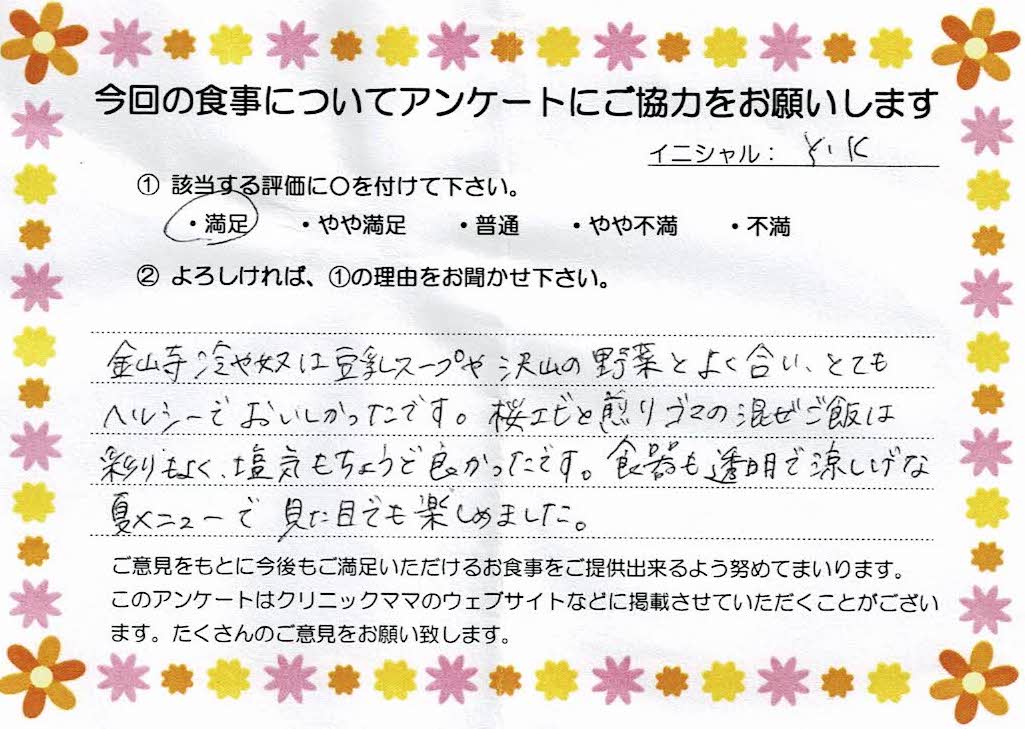 今回の食事についてアンケートにご協力をお願いします
イニシャル： Y.K
① 該当する評価に〇を付けて下さい。
・満足 ・やや満足 ・普通 ・やや不満 ・不満
② よろしければ、①の理由をお聞かせ下さい。
金山寺冷や奴は豆乳スープや沢山の野菜とよく合い、とても
ヘルシーでおいしかったです。桜エビと煎りゴマの混ぜご飯は
彩りもよく、塩気もちょうど良かったです。食器も透明で涼しげな
夏メニューで見た目でも楽しめました。
ご意見をもとに今後もご満足いただけるお食事をご提供出来るよう努めてまいります。
このアンケートはクリニックママのウェブサイトなどに掲載させていただくことがござい
ます。たくさんのご意見をお願い致します。